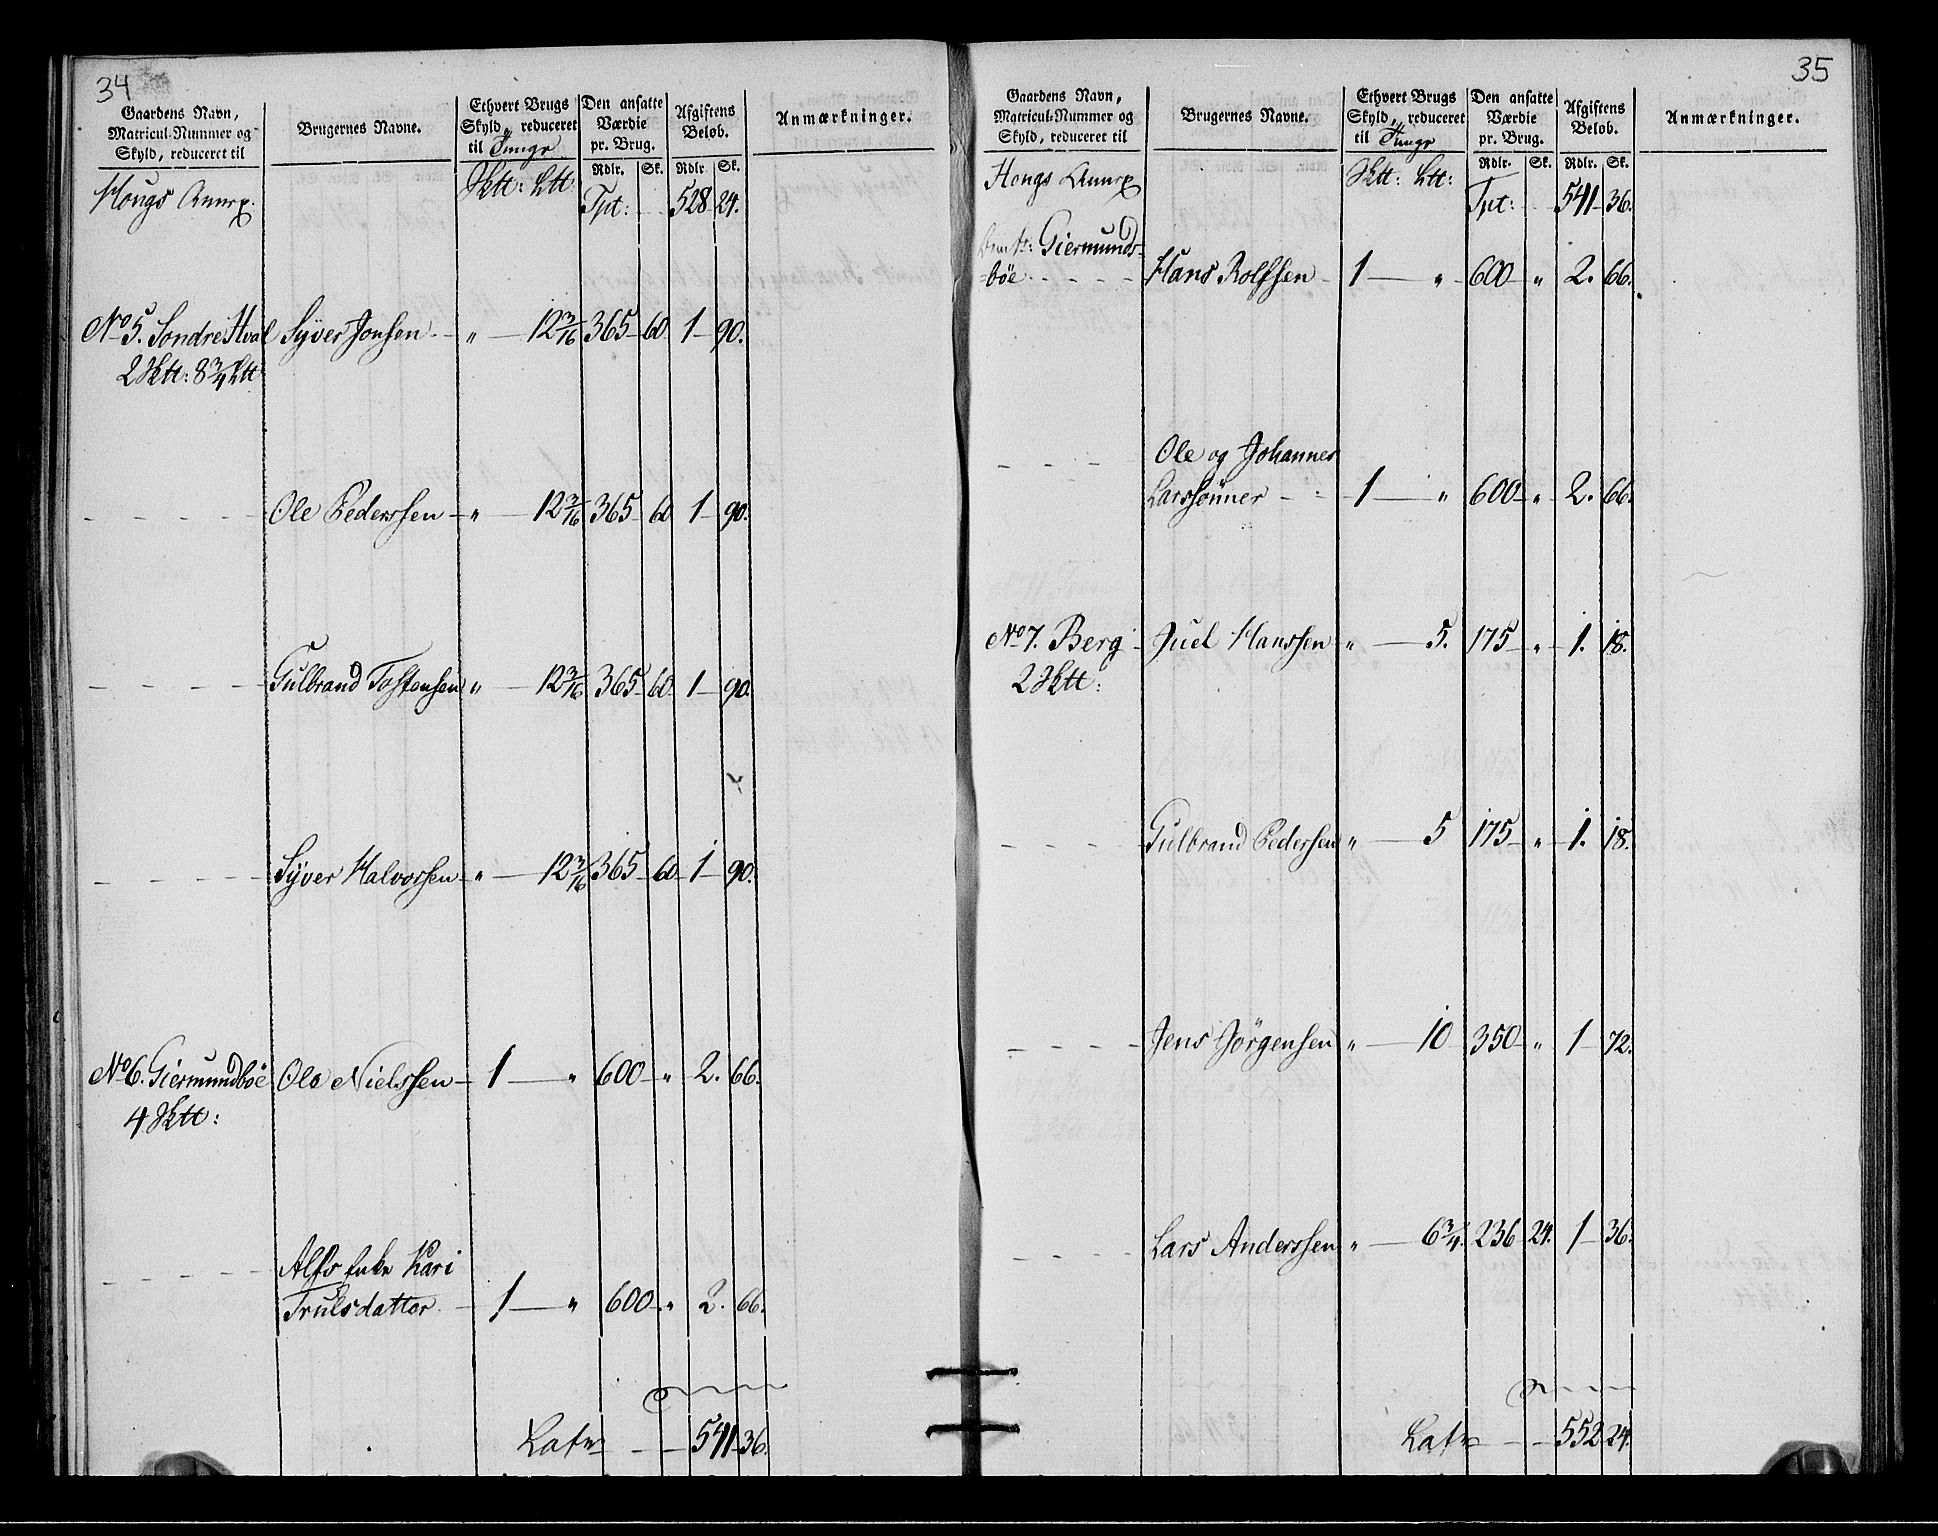 34
Gaardens Navn,
Matricul-Nummer og
Skyld, reduceret til
Brugernes Navne.
Ethvert Brugs
Skyld, reduceret
til Tunge
Den ansatte
Værdie
pr. Brug.
Afgiftens
Beløb.
Anmærkninger.
Rdlr. Sk. Rdlr. Sk.
Hougs Annex. Sktt: Ltt: Tpt: 528 24.
No 5. Søndre Hval Syver Jonsen " 12 3/16 365 60 1 90.
2 Sktt: 8 3/4 Ltt
Ole Pederssen " 12 3/16 365 60 1 90.
Gulbrand Tostensen " 12 3/16 365 60. 1 90.
Syver Halvorsen " 12 3/16 365 60 1 90.
No 6. Giermundbøe Ole Nielssen 1 " 600 " 2. 66.
4 Sktt:
Alfs Enke Kari
Trulsdatter 1 " 600 " 2. 66.
Latus 541 36.
35
Gaardens Navn,
Matricul-Nummer og
Skyld, reduceret til
Brugernes Navne.
Ethvert Brugs
Skyld, reduceret
til Tunge
Den ansatte
Værdie
pr. Brug.
Afgiftens
Beløb.
Anmærkninger.
Rdlr. Sk. Rdlr. Sk.
Hougs Annex Sktt: Ltt: Tpt: 541 36.
Giermunds-
bøe Hans Rolfsen 1 " 600 " 2. 66.
Ole og Johannes
Larssønner 1 " 600 " 2. 66.
No 7. Berg Juel Hanssen " 5. 175 " 1. 18.
2 Sktt:
Gulbrand Pederssen " 5 175 " 1. 18.
Jens Jörgensen " 10 350 " 1 72.
Lars Anderssen " 6 3/4. 236 24. 1 36.
Latus 552 24.